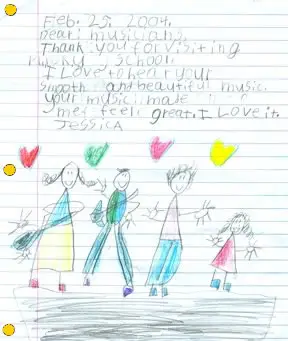 Feb. 25, 2004.
Dear: musicians,
Thank you for visiting
my school.
I Love to hear your
smooth and beautiful music.
your music made
me feel great. I Love it.
Jessica